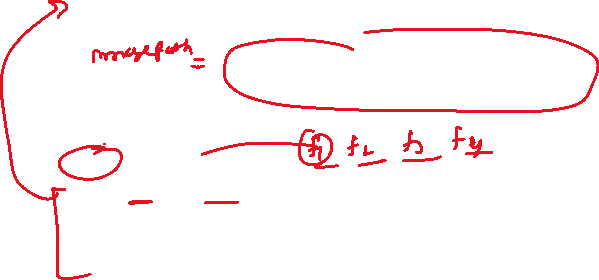 mazepath =
f1 f2 f3 f4